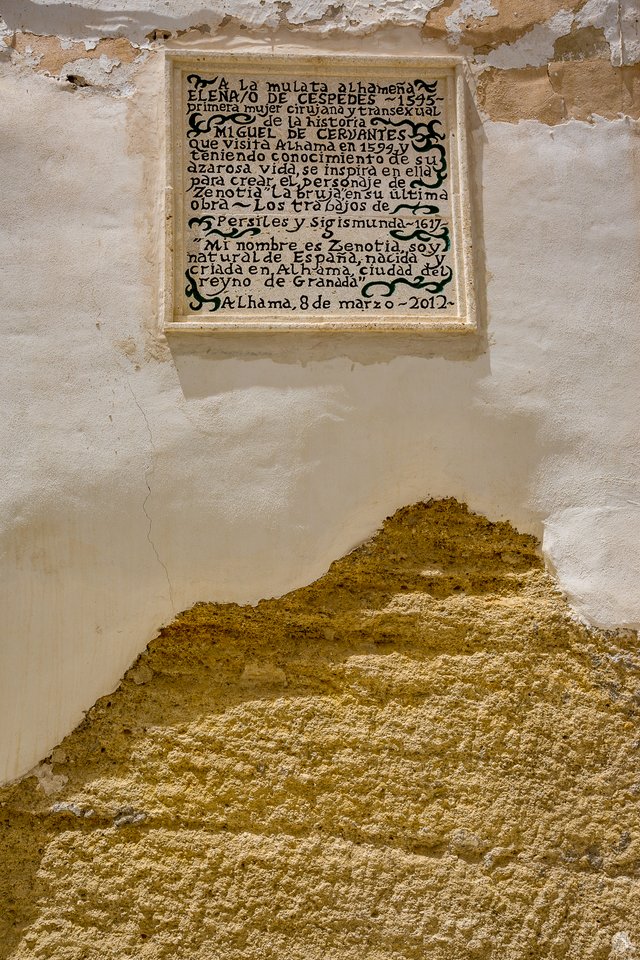 A la mulata alhameña
ELENA/O DE CESPEDES ~1595~
primera mujer cirujana y transexual
de la historia
MIGUEL DE CERVANTES
que visita Alhama en 1594, y
teniendo conocimiento de su
azarosa vida, se inspira en ella
para crear el personaje de
"Zenotia" La bruja, en su última
obra ~ Los trabajos de
Persiles y Sigismunda ~1617~
"Mi nombre es Zenotia, soy
natural de España, nacida y
criada en Alhama, ciudad del
reyno de Granada"
Alhama, 8 de marzo ~2012~